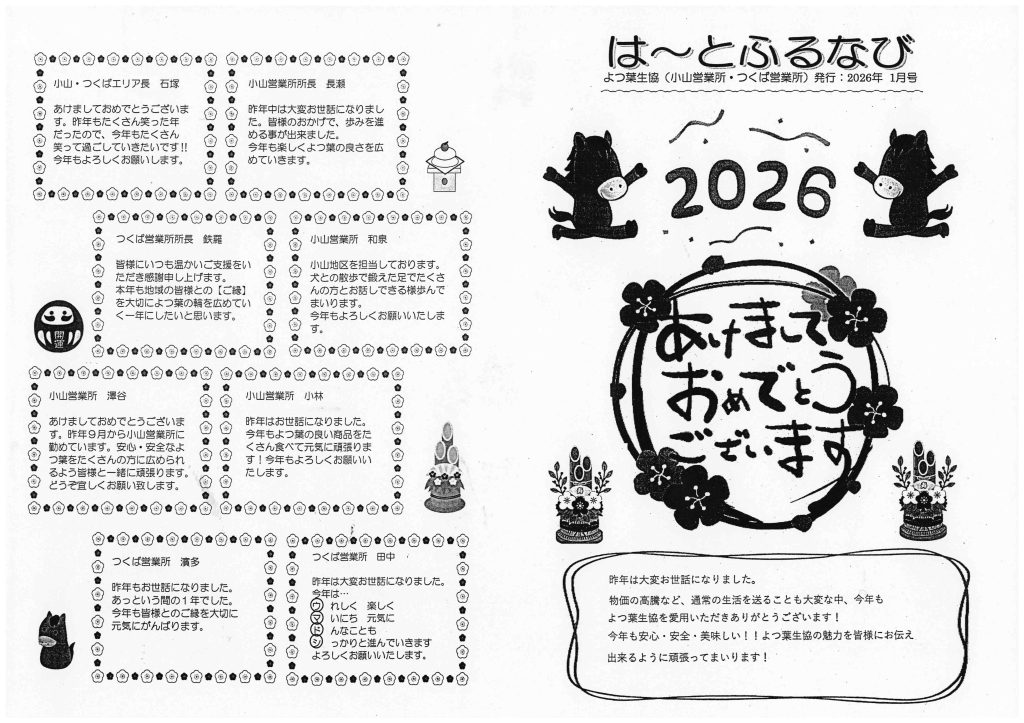 は～とふるなび
よつ葉生協（小山営業所・つくば営業所）発行：2026年 1月号
2026
あけまして
おめでとう
ございます
昨年は大変お世話になりました。
物価の高騰など、通常の生活を送ることも大変な中、今年も
よつ葉生協を愛用いただきありがとうございます！
今年も安心・安全・美味しい！！よつ葉生協の魅力を皆様にお伝え
出来るように頑張ってまいります！
小山・つくばエリア長　石塚
あけましておめでとうございま
す。昨年もたくさん笑った年
だったので、今年もたくさん
笑って過ごしていきたいです!!
今年もよろしくお願いします。
小山営業所所長　長瀬
昨年中は大変お世話になりまし
た。皆様のおかげで、歩みを進
める事が出来ました。
今年も楽しくよつ葉の良さを広
めていきます。
つくば営業所所長　鉄羅
皆様にいつも温かいご支援をい
ただき感謝申し上げます。
本年も地域の皆様との【ご縁】
を大切によつ葉の輪を広めてい
く一年にしたいと思います。
小山営業所　和泉
小山地区を担当しております。
犬との散歩で鍛えた足でたくさ
んの方とお話しできる様歩んで
まいります。
今年もよろしくお願いいたしま
す。
開運
小山営業所　澤谷
あけましておめでとうございま
す。昨年９月から小山営業所に
勤めています。安心・安全なよ
つ葉をたくさんの方に広められ
るよう皆様と一緒に頑張ります。
どうぞ宜しくお願い致します。
小山営業所　小林
昨年はお世話になりました。
今年もよつ葉の良い商品をた
くさん食べて元気に頑張りま
す！今年もよろしくお願いい
たします。
つくば営業所　濱多
昨年もお世話になりました。
あっという間の１年でした。
今年も皆様とのご縁を大切に
元気にがんばります。
つくば営業所　田中
昨年は大変お世話になりました。
今年は…
ウ れしく　楽しく
マ いにち　元気に
ド んなことも
シ っかりと進んでいきます
よろしくお願いいたします。